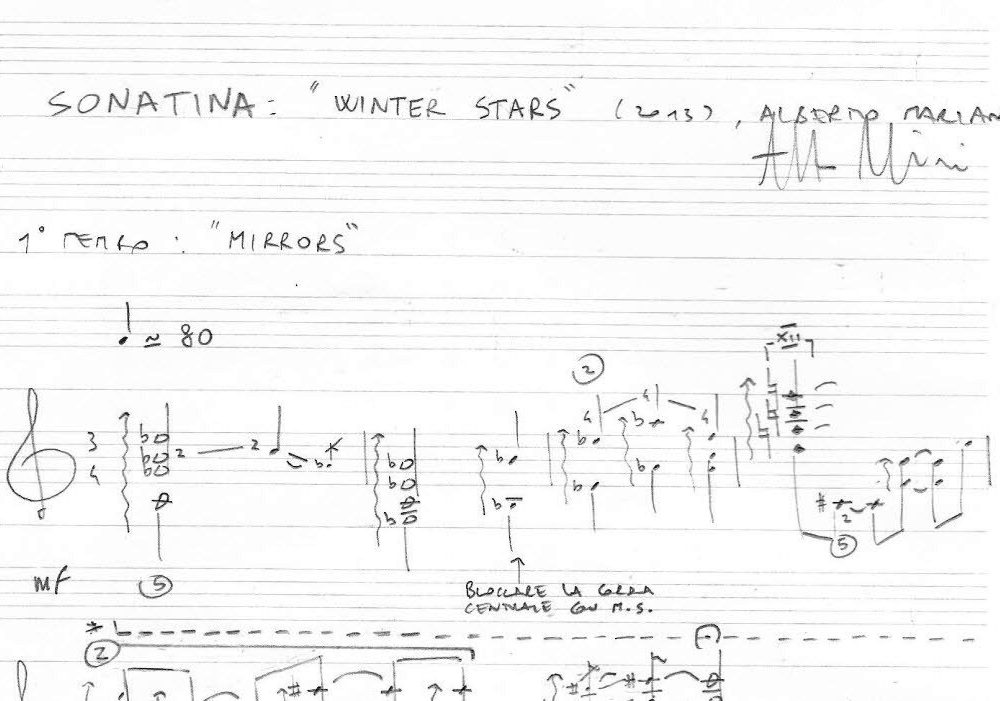 SONATINA: "WINTER STARS" (2013), ALBERTO MARIAN
1° TEMPO: "MIRRORS"
≃ 80
2
XII
3
4
2
2
4
4
4
2
5
mf
5
BLOCCARE LA CORDA
CENTRALE CON M.S.
*
2